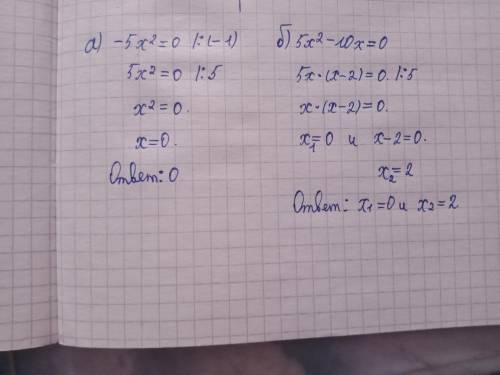 а) -5x²=0 |:(-1)
5x²=0 |:5
x²=0.
x=0.
Ответ: 0
б) 5x²-10x=0
5x·(x-2)=0. |:5
x·(x-2)=0.
x₁=0 и x-2=0.
x₂=2
Ответ: x₁=0 и x₂=2